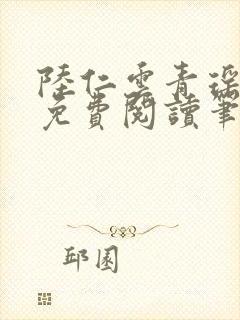 陸仁雲青瑤
免費閱讀筆
邱園